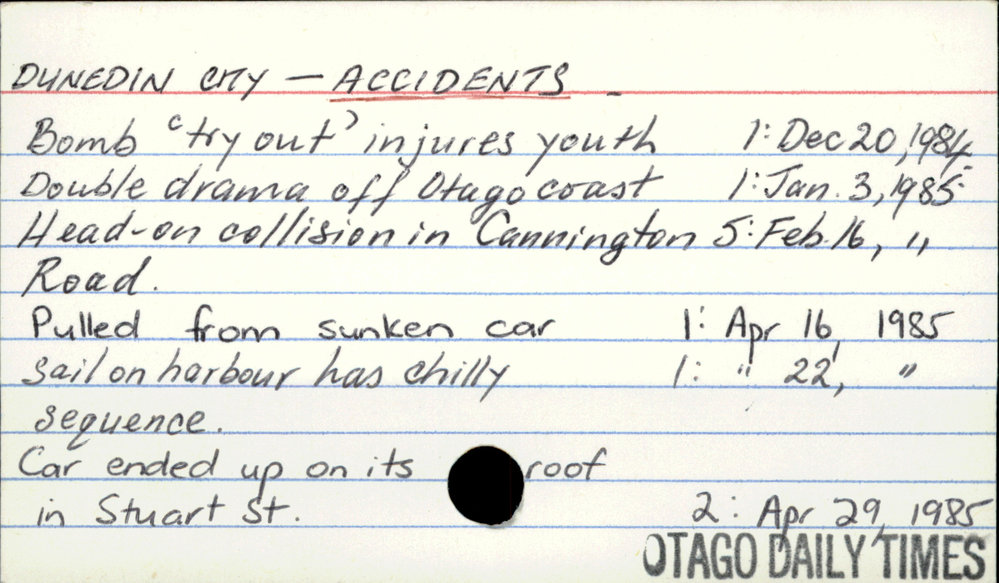 DUNEDIN CITY — ACCIDENTS –
Bomb 'try out' injures youth 1: Dec 20, 1984.
Double drama off Otago coast 1: Jan. 3, 1985.
Head-on collision in Cannington 5: Feb. 16, "
Road.
Pulled from sunken car 1: Apr 16, 1985
Sail on harbour has chilly 1: " 22, "
sequence.
Car ended up on its roof
in Stuart St. 2: Apr 29, 1985
OTAGO DAILY TIMES